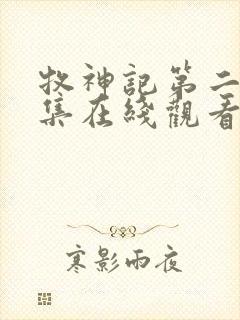 牧神記第二
集在綫觀看
寒影雨夜